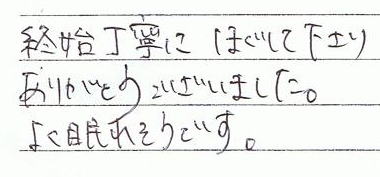 終始丁寧に ほぐして下さり
ありがとうございました。
よく眠れそうです。